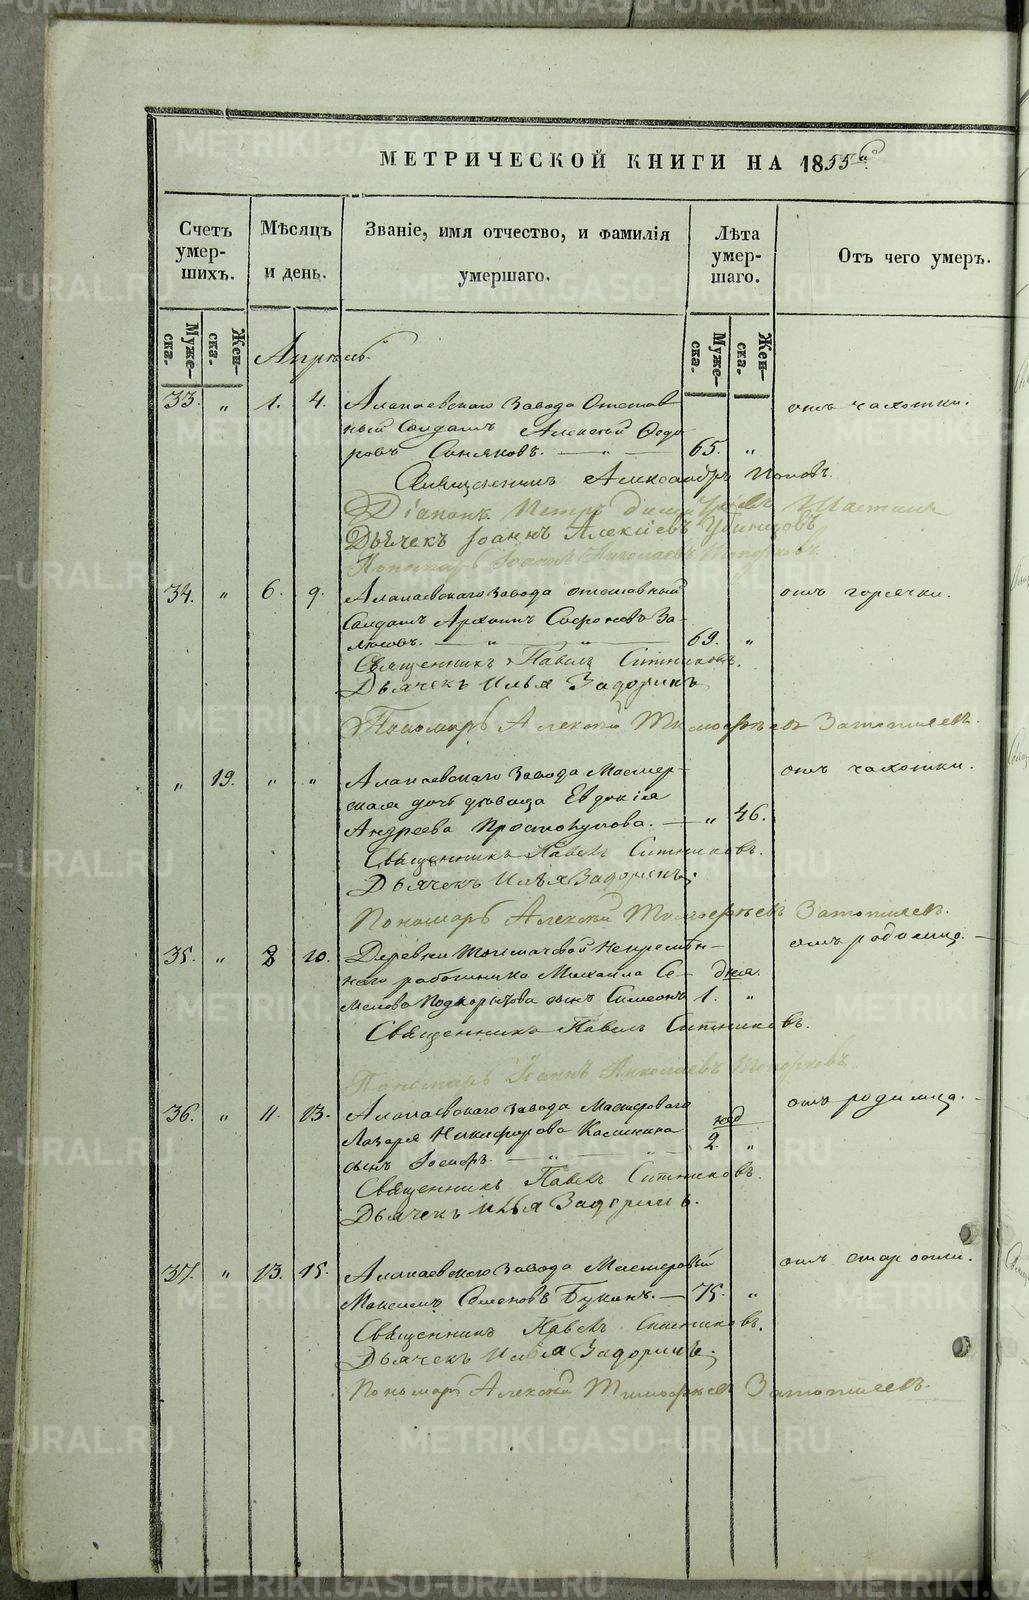 МЕТРИЧЕСКОЙ КНИГИ НА 1855й
Счетъ умер- шихъ.
Мѣсяцъ и день.
Званіе, имя отчество, и фамилія умершаго.
Лѣта умер- шаго.
Отъ чего умеръ.
Муже- ска.
Жен- ска.
Муже- ска.
Жен- ска.
Апрѣль.
33. „ 1. 4. Алапаевскаго Завода Отстав- отъ чахотки.
ный Солдатъ Алексѣй Ѳедо-
ровъ Синяковъ. — „ — 65. „
Священникъ Александръ Поповъ.
Діаконъ Петръ
Дьячекъ Іоаннъ Алексіевъ
Пономарь Іоаннъ Николаевъ Топорковъ.
34. „ 6. 9. Алапаевскаго Завода отставный отъ горячки.
Солдатъ Архипъ Софроновъ За-
„ „ 69. „
Священникъ Павелъ Ситниковъ.
Дьячекъ Илья Задоринъ
Пономарь Алексѣй Тимофѣевъ Затопляевъ.
„ 19. „ „ Алапаевскаго Завода Мастер- отъ чахотки.
ская дочь дѣвица Евдокія
Андреева Простокупова. — „ 46.
Священникъ Павелъ Ситниковъ.
Дьячекъ Илья Задоринъ;
Пономарь Алексѣй Тимофѣевъ Затопляевъ.
35. „ 8 10. Деревни Толмачевой Непремѣн- отъ родимца. —
наго работника Михаила Се- дня.
менова Подкорытова сынъ Симеонъ 1. „
Священникъ Павелъ Ситниковъ.
Пономарь Іоаннъ Николаевъ Топорковъ
36. „ 11. 13. Алапаевскаго Завода Мастероваго отъ родимца. —
Лазаря Никифорова Калинина год
сынъ „ „ 2. „
Священникъ Павелъ Ситниковъ.
Дьячекъ Илья Задоринъ.
37. „ 13. 15. Алапаевскаго Завода Мастеровый отъ старости.
Максимъ Семеновъ Букинъ. — 75. „
Священникъ Павелъ Ситниковъ.
Дьячекъ Илья Задоринъ;
Пономарь Алексѣй Тимофѣевъ Затопляевъ.
METRIKI.GASO-URAL.RU